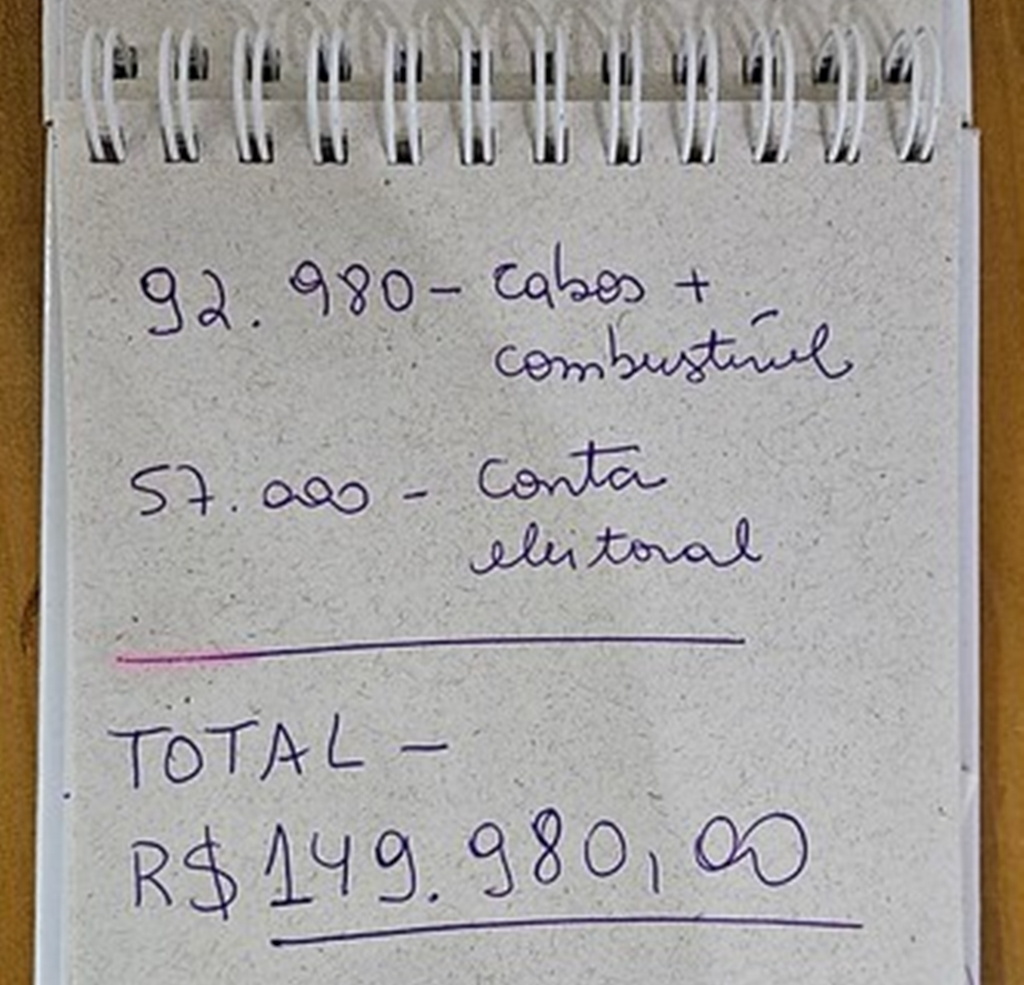 92.980 - cabos +
combustível
57.000 - conta
eleitoral
TOTAL -
R$ 149.980,00